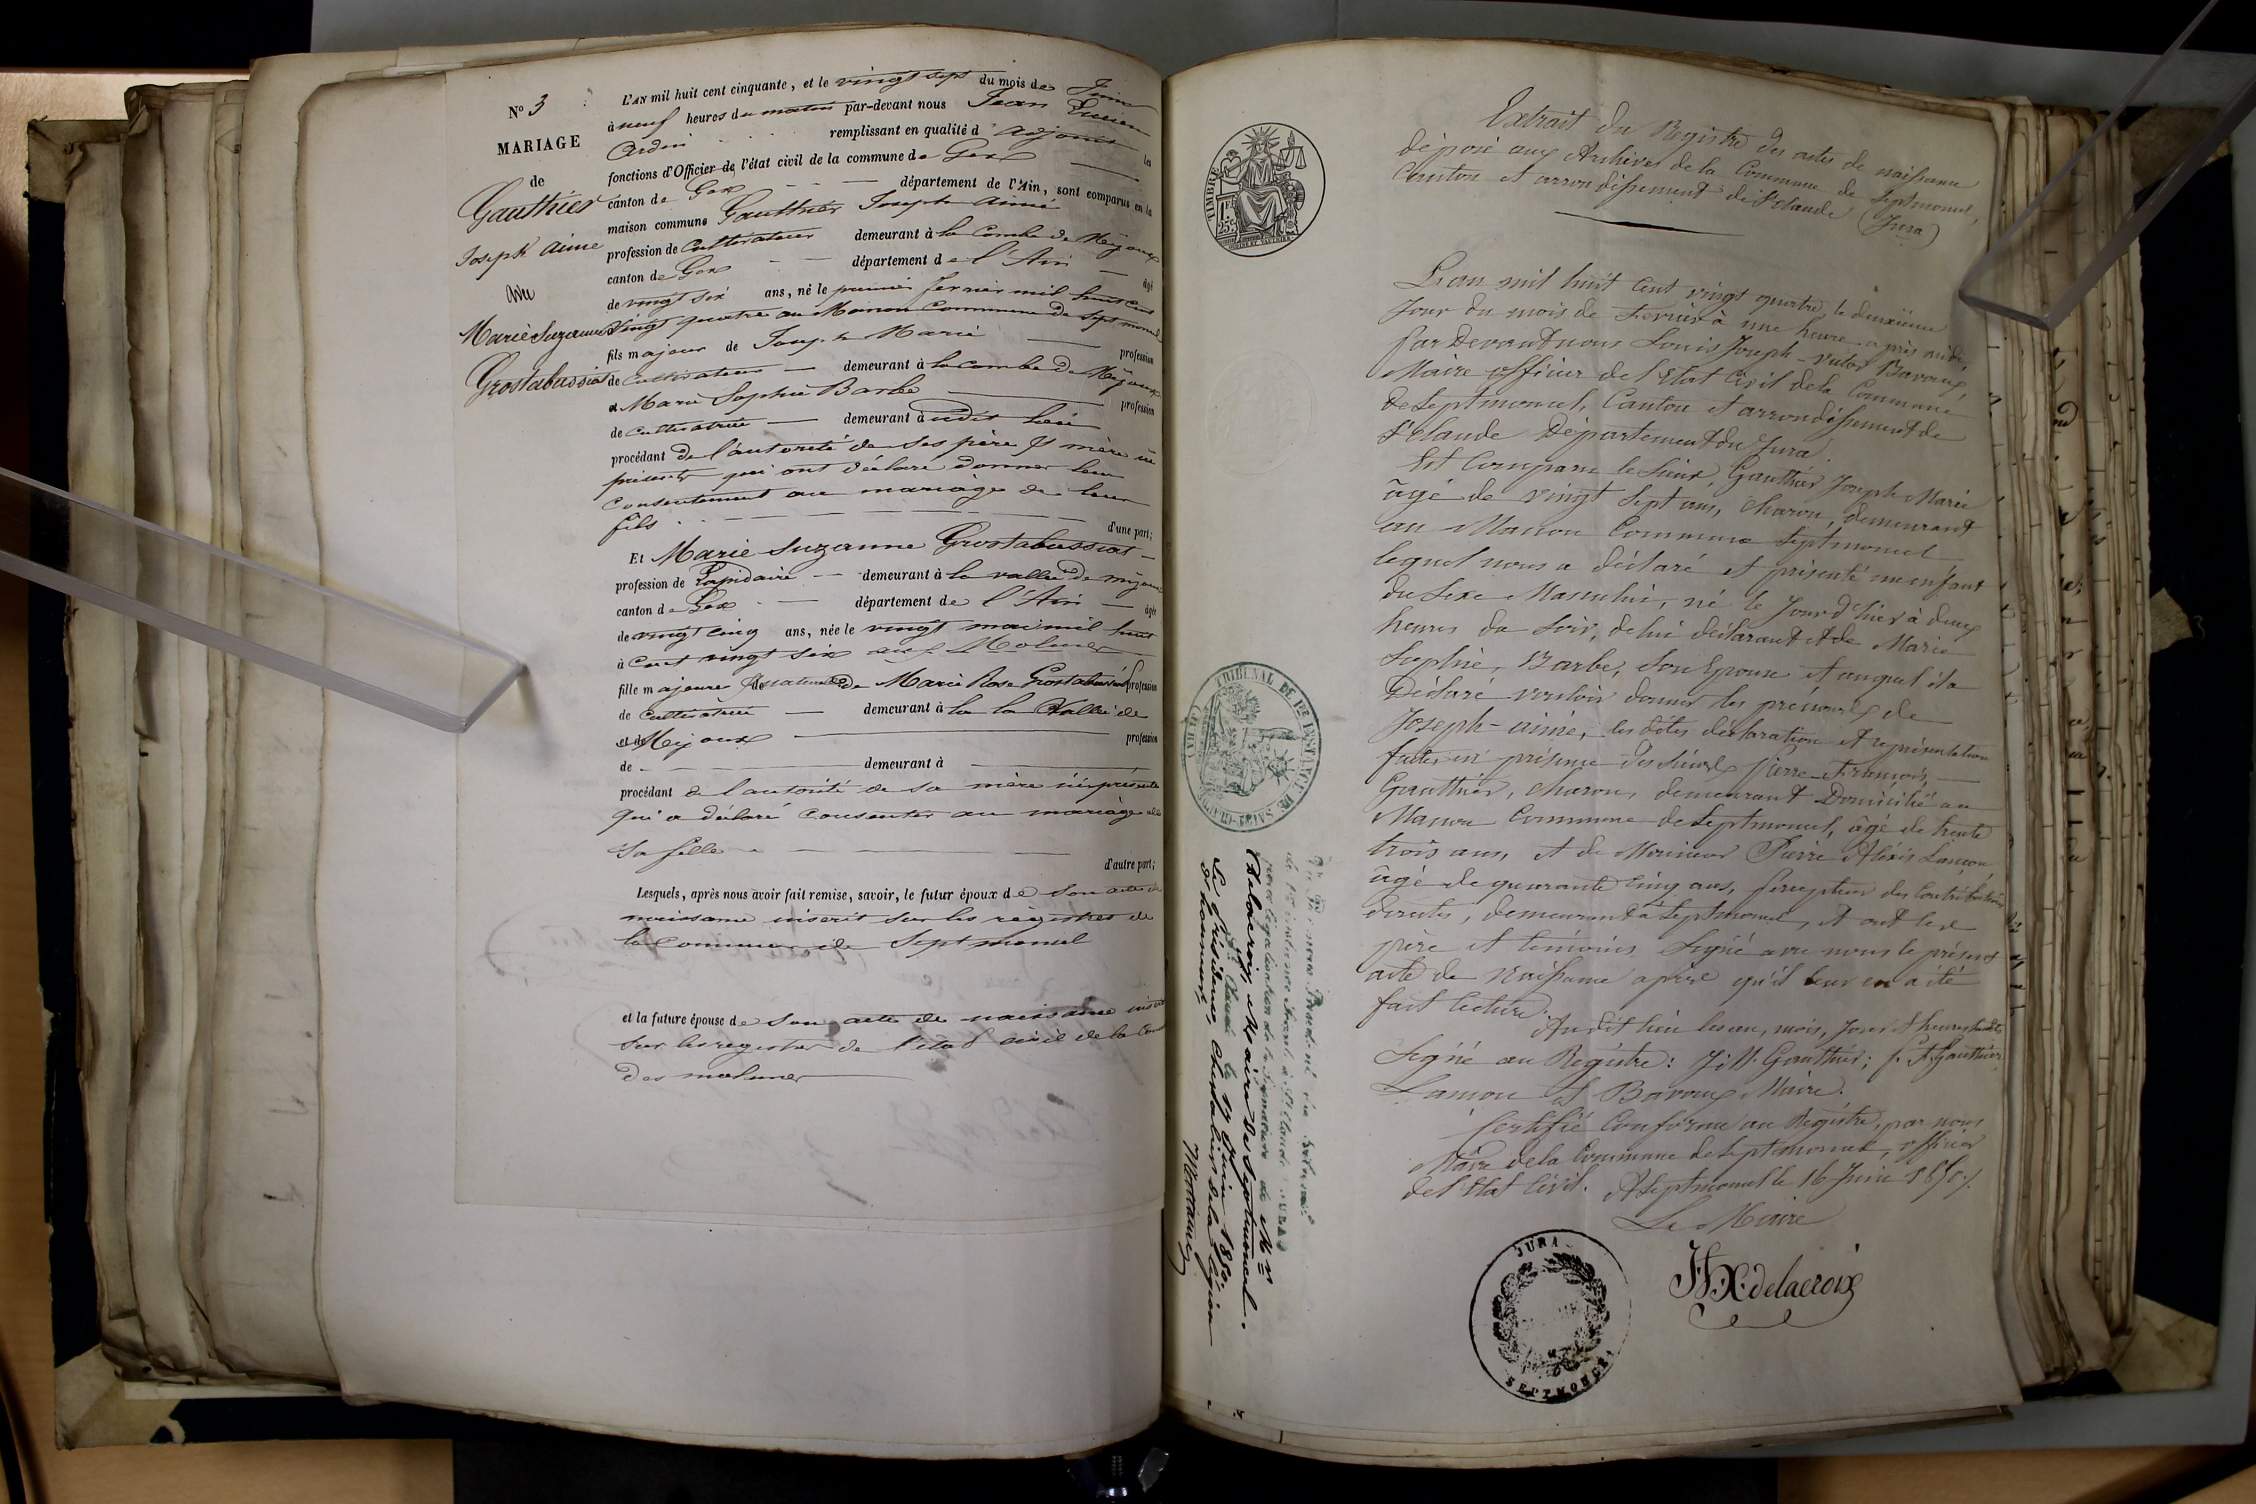 N° 3
MARIAGE
de
Gauthier
Joseph aimé
avec
Marie Suzanne
Grostabussiat
L'AN mil huit cent cinquante, et le vingt sept du mois de Juin
à neuf heures du matin par-devant nous Jean Lucien
remplissant en qualité d'adjoint les
fonctions d'Officier de l'état civil de la commune de Gex
canton de Gex département de l'Ain, sont comparus en la
maison commune Gauthier Joseph aimé
profession de Cultivateur demeurant à la Combe de Mijoux
canton de Gex département de l'Ain âgé
de vingt six ans, né le premier fevrier mil huit cent
vingt quatre au Manon Commune de Septmoncel
fils majeur de Joseph Marie profession
de Cultivateur demeurant à la combe de Mijoux
et Marie Sophie Barbe profession
de cultivatrice demeurant audit lieu
procédant de l'autorité de ses père et mère ici
présents qui ont déclaré donner leur
consentement au mariage de leur
fils d'une part;
Et Marie Suzanne Grostabussiat
profession de Lapidaire demeurant à la vallée de mijoux
canton de Gex département de l'Ain âgée
de vingt cinq ans, née le vingt mai mil huit
à cent vingt six aux Molunes
fille majeure naturelle de Marie Rose Grostabussiat profession
de cultivatrice demeurant à la la Vallée de
et de Mijoux profession
de demeurant à
procédant de l'autorité de sa mère ici présente
qui a déclaré consentir au mariage de
sa fille
d'autre part;
Lesquels, après nous avoir fait remise, savoir, le futur époux de son acte de
naissance inscrit sur les registres de
la Commune de Septmoncel
et la future épouse de son acte de naissance inscrit
sur les registres de l'état civil de la
des molunes
TIMBRE
1 F.
25 c.
TRIBUNAL DE 1RE INSTANCE DE SAINT-CLAUDE
Vu par nous Président du tribunal
de 1re instance séant à St Claude (JURA)
pour légalisation de la signature de Mr
Delacroix, Maire de Septmoncel.
St Claude le 17 Juin 1850.
Le Président, chevalier de la légion
d'honneur,
Extrait du Registre des actes de naissance
déposé aux Archives de la Commune de Septmoncel,
Canton et arrondissement de St Claude (Jura)
L'an mil huit cent vingt quatre, le deuxième
Jour du mois de Fevrier à une heure après midi,
Par devant nous Louis Joseph Victor Bavoux,
Maire officier de l'Etat Civil de la Commune
de Septmoncel, Canton et arrondissement de
St Claude Département du Jura.
Est Comparu le Sieur, Gauthier Joseph Marie
âgé de vingt Sept ans, charon, demeurant
au Manon Commune Septmoncel
lequel nous a déclaré et présenté un enfant
du Sexe Masculin, né le Jour d'hier à deux
heures du Soir, de lui déclarant et de Marie
Sophie, Barbe, Son Epouse et auquel il a
Déclaré vouloir donner les prénoms de
Joseph-aimé, les dites déclaration et représentation
faites en présence des Sieurs Pierre François
Gauthier, charon, demeurant Domicilié au
Manon Commune de Septmoncel, âgé de trente
trois ans, et de Monsieur Pierre Alexis Lançon
âgé de quarante Cinq ans, percepteur des Contributions
directes, demeurant à Septmoncel, et ont les
père et témoins Signé avec nous le présent
acte de Naissance après qu'il leur en a été
fait lecture.
Au dit lieu les an, mois, Jour et heure Susdits
Signé au Registre: J. M. Gauthier; P. F. Gauthier
Lançon et Bavoux Maire.
Certifié Conforme au Registre, par nous
Maire de la Commune de Septmoncel, officier
de l'Etat Civil. A Septmoncel le 16 Juin 1850.
Le Maire
Delacroix
JURA
SEPTMONCEL